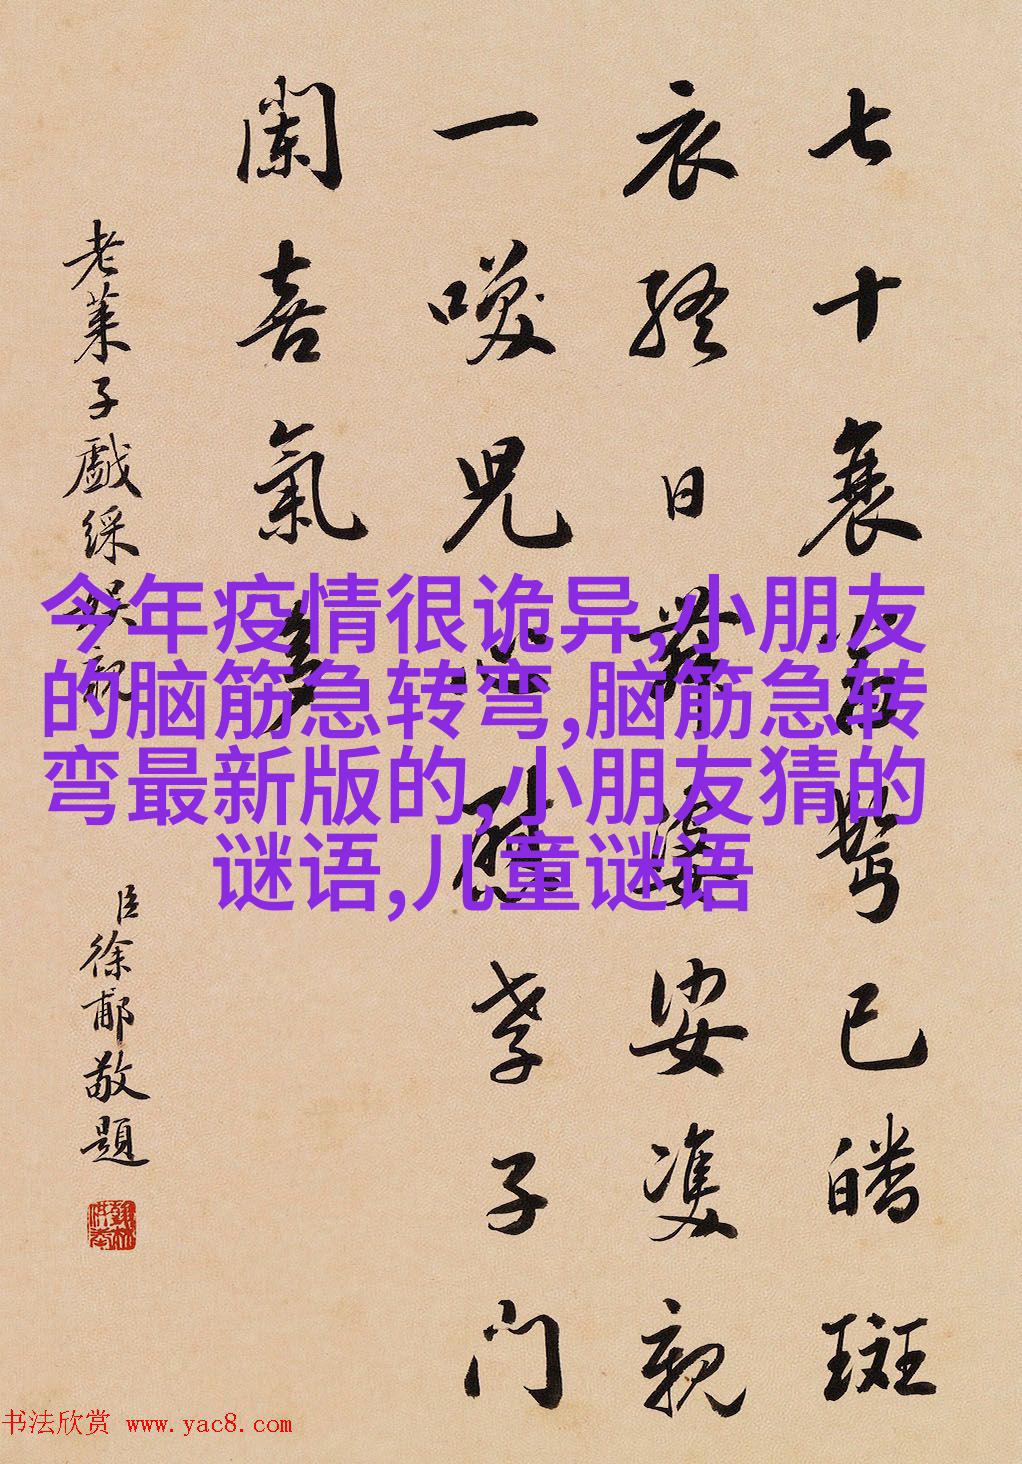 七十衰已皤斑
衣終日舞婆娑雙親
一兒心慰孝子門
闌喜氣多
老萊子戲綵娛親
臣徐郙敬題
今年疫情很诡异,小朋友
的脑筋急转弯,脑筋急转
弯最新版的,小朋友猜的
谜语,儿童谜语
书法欣赏 www.yac8.com